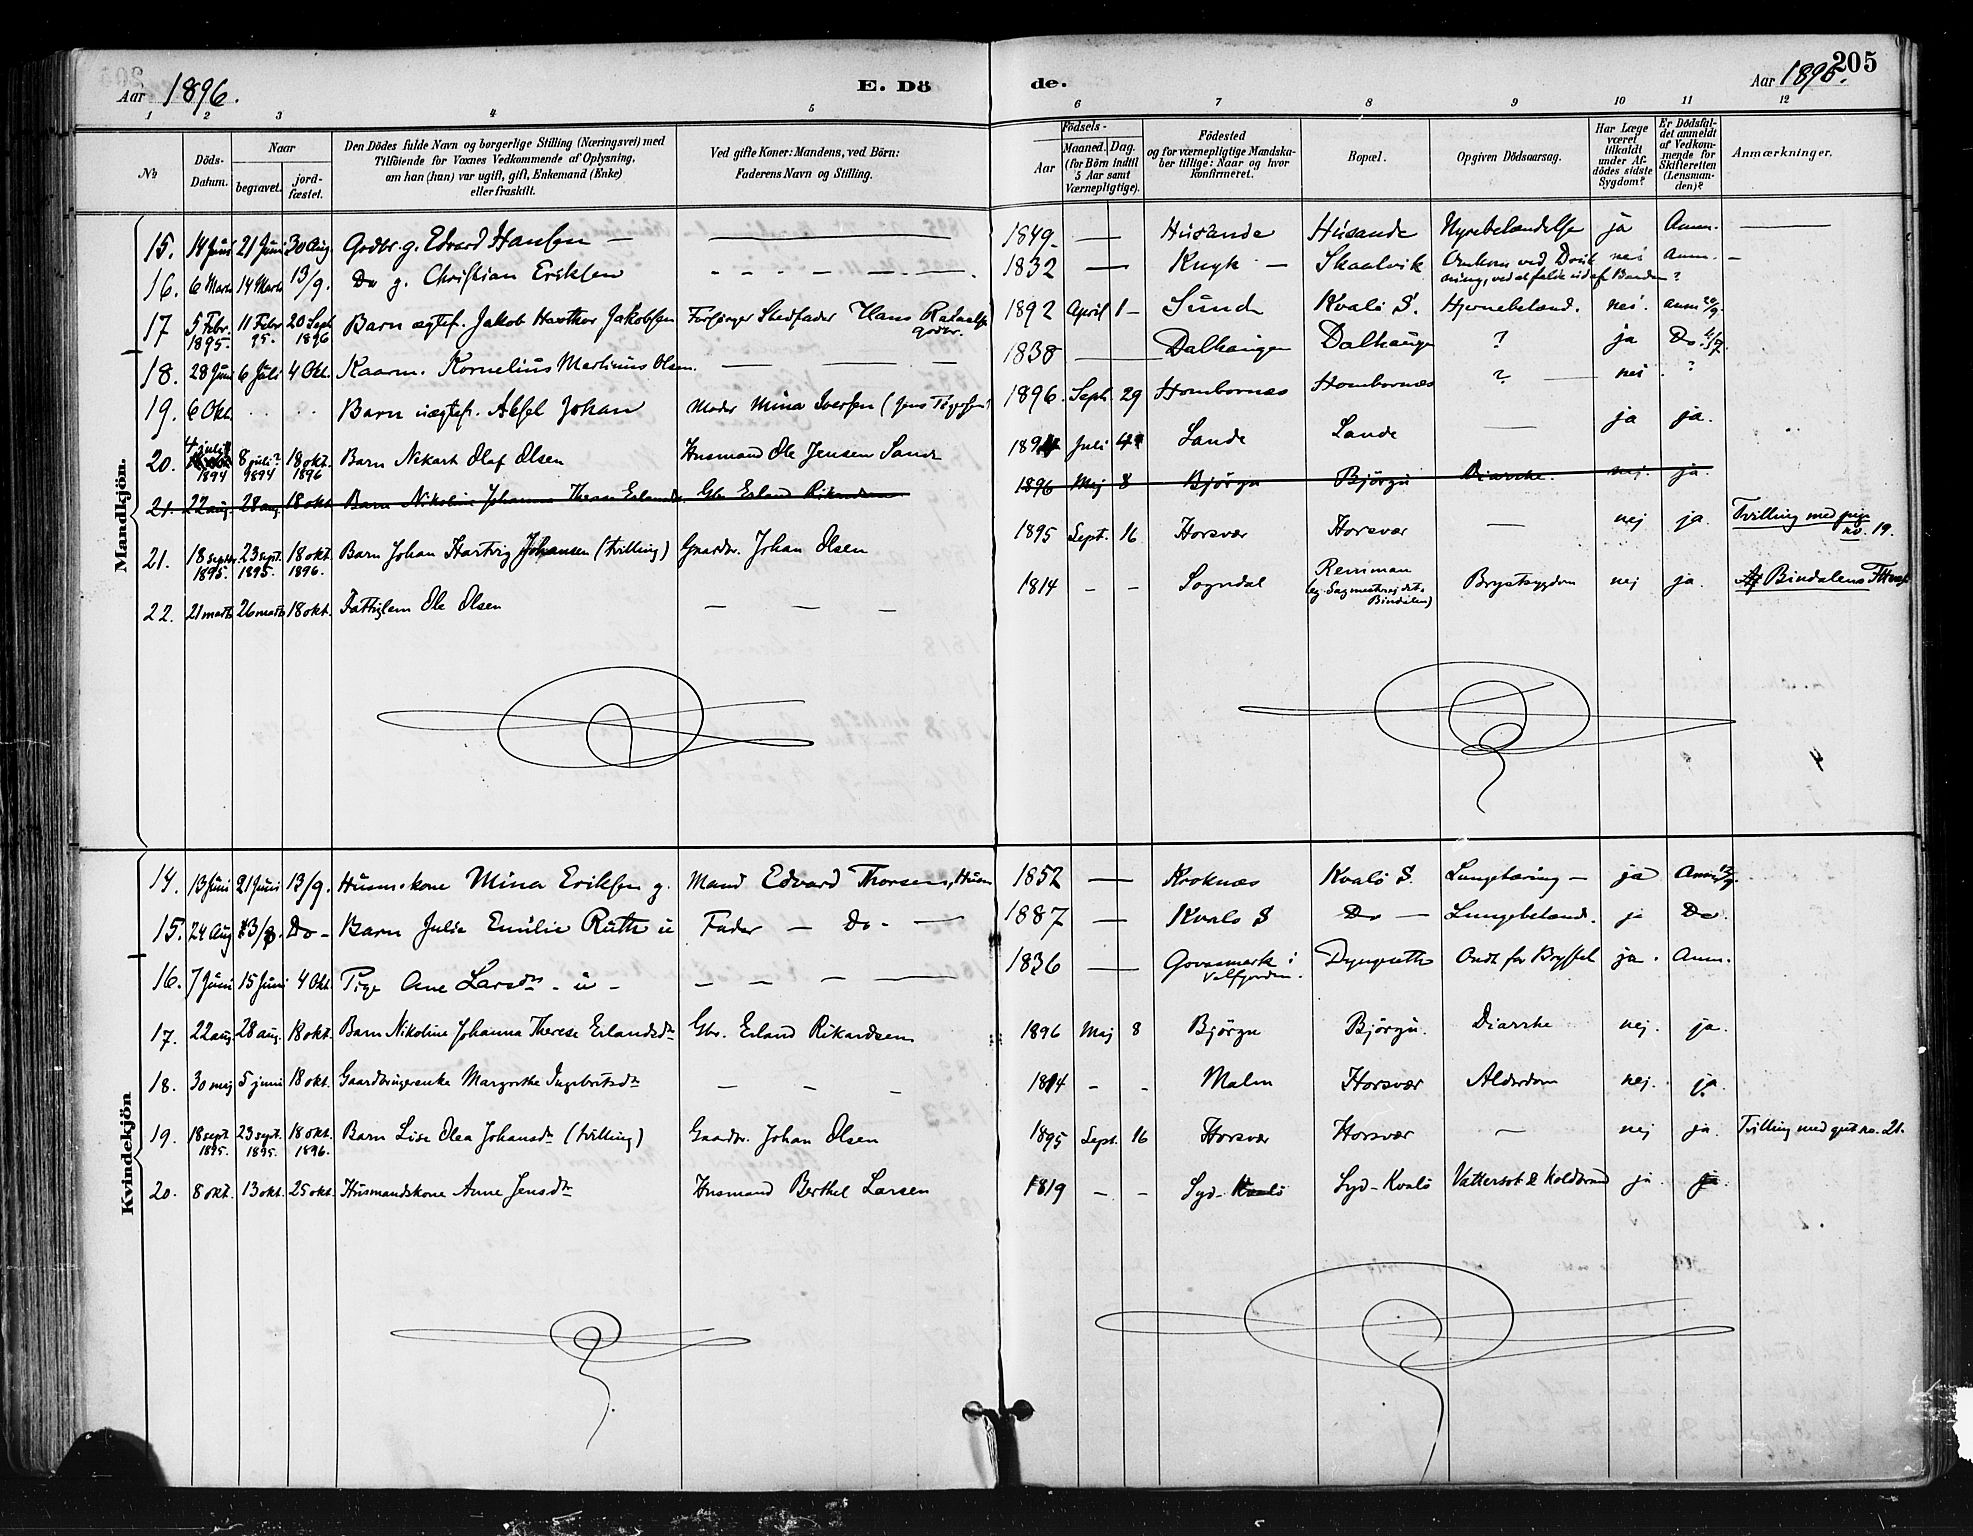 205
Aar 1896.
E. Dö
de.
Aar 1896.
1 2 3 4 5 6 7 8 9 10 11 12
№
Döds-Datum.
Naar
begravet.
jord-fæstet.
Den Dödes fulde Navn og borgerlige Stilling (Næringsvei) med
Tilföiende for Voxnes Vedkommende af Oplysning,
om han (hun) var ugift, gift, Enkemand (Enke)
eller fraskilt.
Ved gifte Koner: Mandens, ved Börn:
Faderens Navn og Stilling.
Födsels-
Aar
Maaned. Dag.
(for Börn indtil
5 Aar samt
Værnepligtige).
Födested
og for værnepligtige Mandska-
ber tillige: Naar og hvor
konfirmeret.
Bopæl.
Opgiven Dödsaarsag.
Har Læge
været
tilkaldt
under Af-
dödes sidste
Sygdom?
Er Dödsfal-
det anmeldt
af Vedkom-
mende for
Skifteretten
(Lensman-
den)?
Anmærkninger.
Mandkjön.
15. 14 Juni 21 Juni 30 Aug. Godbr. g. Edvard Hansen — 1849 — Husande Husande Nyrebetændelse ja Anm.
16. 6 Marts 14 Marts 13/9. Do g. Christian Eriksen 1832 — Knyk — Skaalvik nei Anm. —
17 5 Febr. 1895. 11 Febr 95. 20 Sept 1896 Barn ægtef. Jakob Jakobsen Forsørger Stedfader Hans 1892 April 1 — Sund Kvalö S. Hjernebetænd. nei. anm 20/9.
18. 28 Juni 6 Juli 4 Okt. Kaarm. Kornelius Martinus Olsen. 1838 — Dalhaugen Dalhaugen ? ja Do
19. 6 Okt. Barn uægtef. Aksel Johan Moder Mina Iversen 1896. Sept. 29 Hombornæs Hombornæs ? nei . ?
20. 4 juli 1894 8 juli? 1894 18 okt. 1896 Barn Nekart Olaf Olsen Husmand Ole Jensen Sande 1894 Juli 4 Sande Sande — ja ja.
21. 22 aug. 28 aug. 18 okt Barn Nikoline Johanna Therese Erlandsd. Gbr. Erland Rikardsen 1896 Mej 8 Björgu Björgu Diarrhe. nej. ja.
21. 18 septbr. 1895. 23 sept. 1895. 18 okt. 1896. Barn Johan Hartvig Johansen (tvilling) Gaardbr. Johan Olsen 1895 Sept. 16 Horsvær Horsvær — nej ja. Tvilling med pige no. 19.
22. 21 marts 26 marts 18 okt. Fattiglem Ole Olsen — — — 1814 — — Sogndal Bindalen) Brystsygdom nej ja. Af Bindalens
Kvindekjön
14. 13 Juni 21 Juni 13/9. Husm.kone Mina Eriksen g. Mand Edvard Thorsen, Husm 1852 — Kroknæs Kvalö S. Lungetæring — ja Anm
15. 24 Aug Do — Barn Julie Emilie Ruth u Fader — Do — 1887 — Kvalö S Do — Lungebetænd. ja Do.
16. 7 Juni 15 Juni 4 Okt Pige Ane Larsdtr. u — — — 1836 — i Velfjorden. Ondt for Brystet ja. Anm.
17. 22 aug. 28 aug. 18 okt. Barn Nikoline Johanna Therese Erlandsdtr Gbr. Erland Rikardsen 1896 Mej 8 Björgu Björgu. Diarrhe nej. ja.
18. 30 mej 5 juni 18 okt. Gaardbrugerenke Margrethe Ingebritsdtr — — — 1814 — — Malm Horsvær Alderdom nej. ja.
19. 18 sept. 1895. 23 sept. 1895. 18 okt. 1896. Barn Lise Olea Johansdtr (tvilling) Gaardbr. Johan Olsen 1895 Sept. 16 Horsvær Horsvær — nej ja. Tvilling med gut no. 21.
20. 8 okt. 13 okt. 25 okt. Husmandskone Anne Jensdtr Husmand Berthel Larsen 1819 — — Syd-Kvalö Syd-Kvalö Vattersot & Koldbrand ja ja.